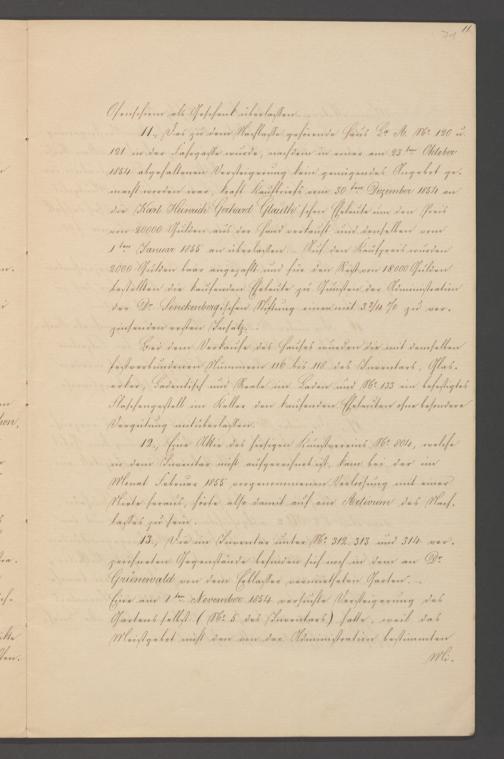 11.
Ofenschirm als Geschenk überlassen.
11., Das zu dem Nachlasse gehörende Haus Lr. A. No. 120 u.
121 in der Fahrgasse wurde, nachdem in einer am 23ten Oktober
1854 abgehaltenen Versteigerung kein genügendes Angebot ge-
macht worden war, kraft Kaufbriefs vom 30ten Dezember 1854 an
die Karl Heinrich Gerhard Glauth'schen Eheleute um den Preis
von 20000 Gulden aus der Hand verkauft und denselben vom
1ten Januar 1855 an überlassen. Auf den Kaufpreis wurden
2000 Gulden baar angezahlt und für den Rest von 18000 Gulden
bestellten die kaufenden Eheleute zu Gunsten der Administration
der Dr. Senckenbergischen Stiftung einen mit 3 3/4 % zu ver-
zinsenden ersten Insatz.
Bei dem Verkaufe des Hauses wurden die mit demselben
festverbundenen Nummern 116 bis 118 des Inventars, Glas-
erker, Ladentisch und Reale im Laden und No. 133 ein befestigtes
Flaschengestell im Keller den kaufenden Eheleuten ohne besondere
Vergütung mitüberlassen.
12., Eine Aktie des hiesigen Kunstvereins No. 804, welche
in dem Inventar nicht aufgezeichnet ist, kam bei der im
Monat Februar 1855 vorgenommenen Verloosung mit einer
Niete heraus, hörte also damit auf ein Activum des Nach-
lasses zu sein.
13., Die im Inventar unter No. 312. 313 und 314 ver-
zeichneten Gegenstände befinden sich noch in dem an Dr.
Grünewald von dem Erblasser vermietheten Garten.
Eine am 1ten November 1854 versuchte Versteigerung des
Gartens selbst (No. 5 des Inventars) hatte, weil das
Meistgebot nicht den von der Administration bestimmten
Mi-